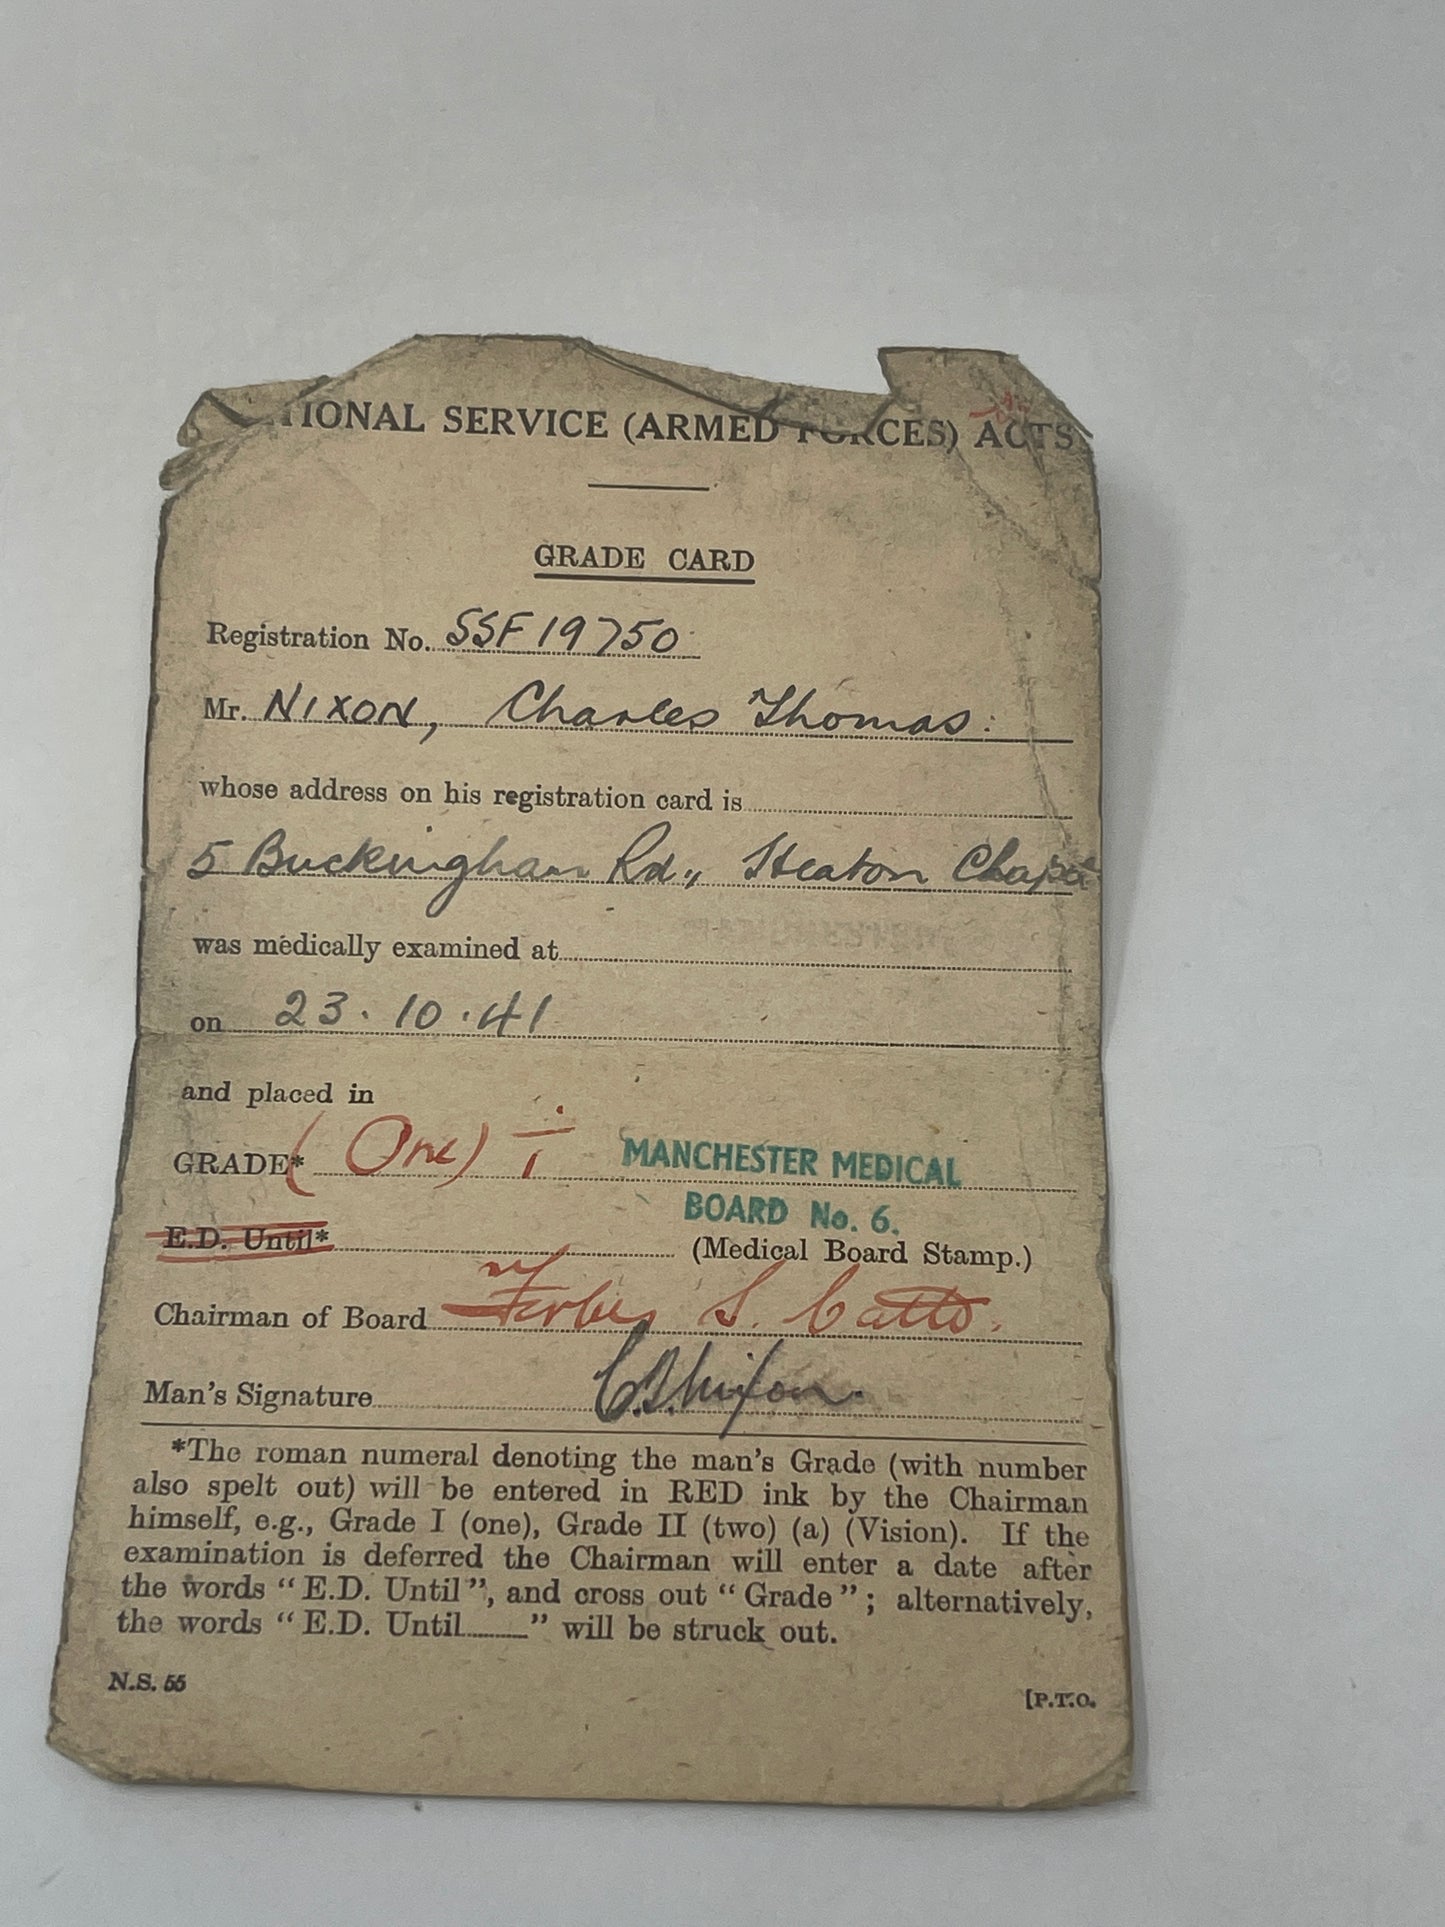 TIONAL SERVICE (ARMED FORCES) ACTS
GRADE CARD
Registration No. SSF 19750
Mr. NIXON, Charles Thomas.
whose address on his registration card is
5 Buckingham Rd., Heaton Chapel
was medically examined at
on 23.10.41
and placed in
GRADE* (One) I
MANCHESTER MEDICAL
BOARD No. 6.
E.D. Until*
(Medical Board Stamp.)
Chairman of Board Forbes S. Catto.
Man's Signature C.T. Nixon.
*The roman numeral denoting the man's Grade (with number
also spelt out) will be entered in RED ink by the Chairman
himself, e.g., Grade I (one), Grade II (two) (a) (Vision). If the
examination is deferred the Chairman will enter a date after
the words "E.D. Until", and cross out "Grade"; alternatively,
the words "E.D. Until......" will be struck out.
N.S. 55
[P.T.O.